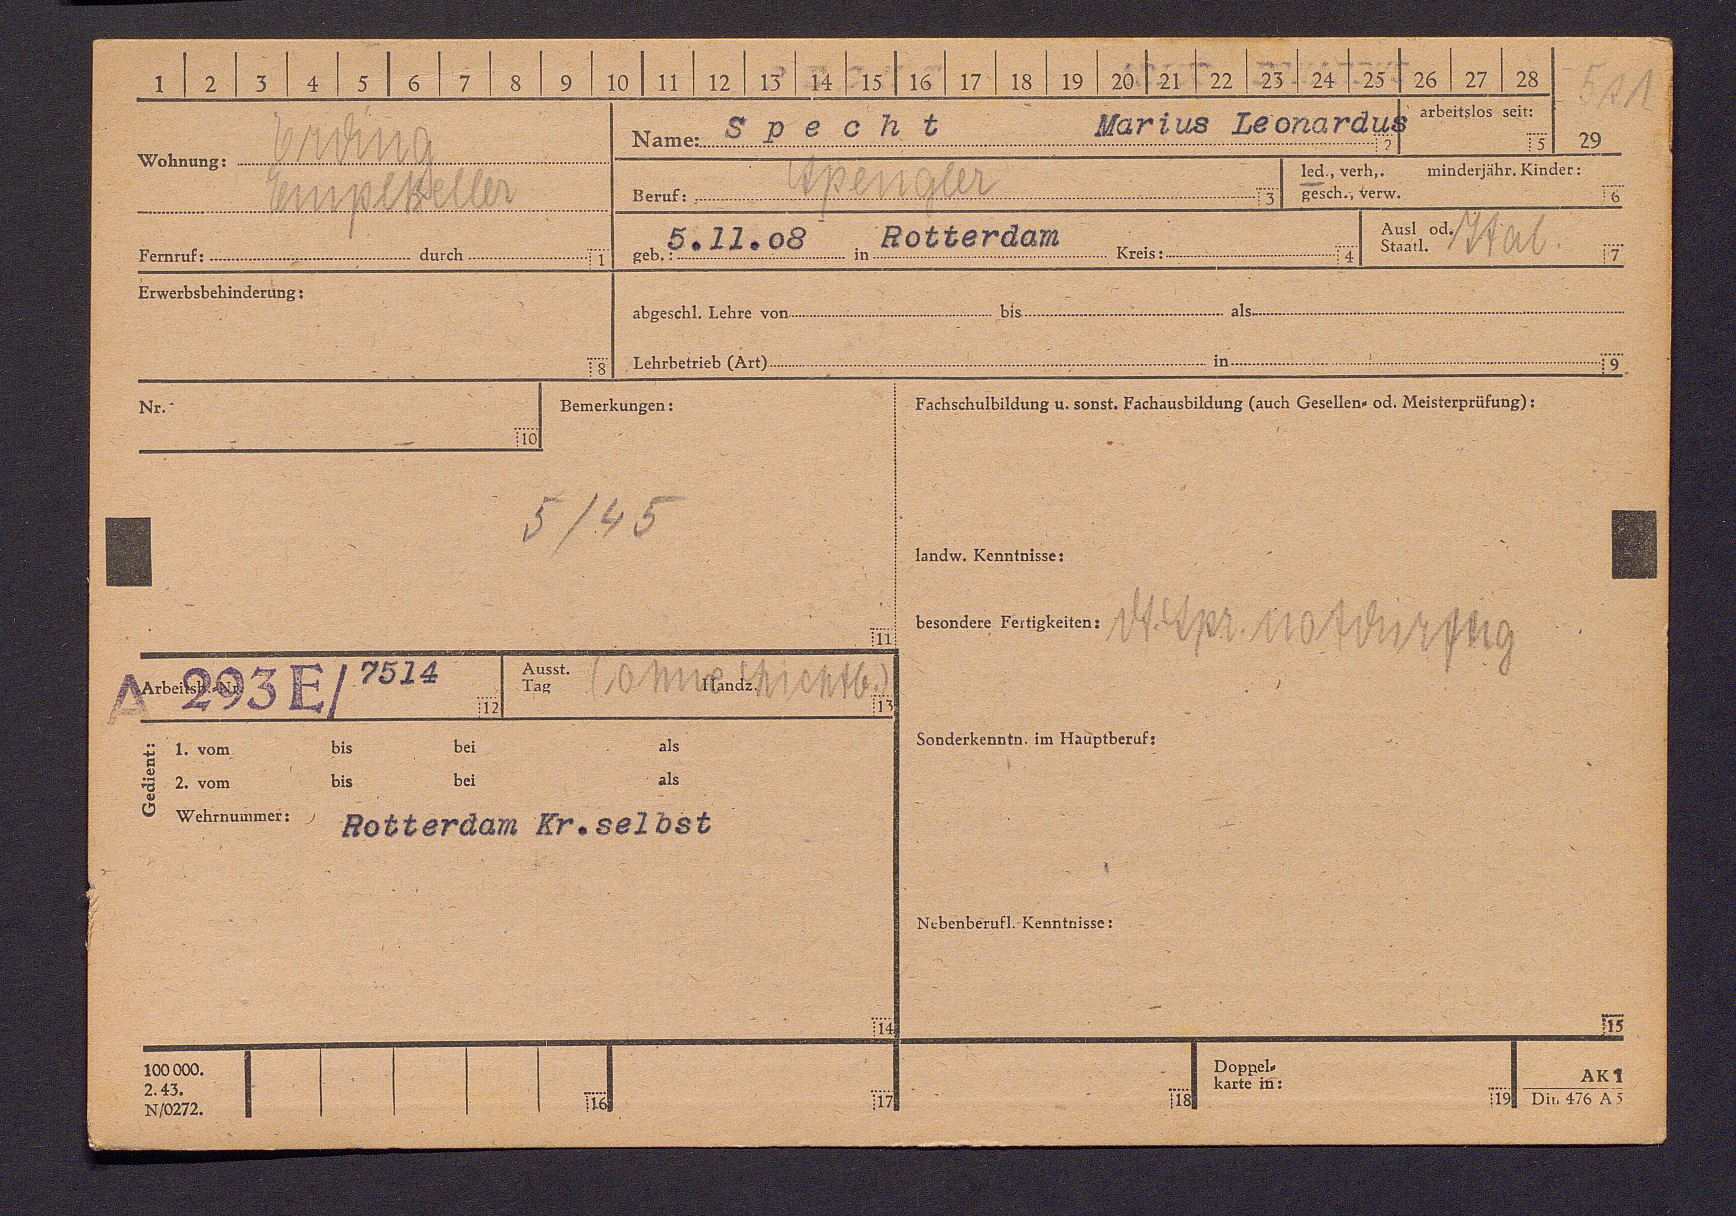 1 2 3 4 5 6 7 8 9 10 11 12 13 14 15 16 17 18 19 20 21 22 23 24 25 26 27 28
511
Wohnung: Erding
Empl Keller
Fernruf: durch 1
Name: Specht Marius Leonardus 2
arbeitslos seit: 5
29
Beruf: Spengler 3
led., verh,. minderjähr. Kinder:
gesch., verw. 6
geb.: 5.11.08 in Rotterdam Kreis: 4
Ausl od.
Staatl. Ital. 7
Erwerbsbehinderung:
8
abgeschl. Lehre von bis als
Lehrbetrieb (Art) in 9
Nr.
10
Bemerkungen:
5/45
11
Fachschulbildung u. sonst. Fachausbildung (auch Gesellen- od. Meisterprüfung):
landw. Kenntnisse:
besondere Fertigkeiten: dt. Spr. notdürftig
Sonderkenntn. im Hauptberuf:
Nebenberufl. Kenntnisse:
15
Arbeitsb.-Nr. A 293 E/ 7514 12
Ausst.
Tag (ohne Lichtb.) Handz. 13
Gedient:
1. vom bis bei als
2. vom bis bei als
Wehrnummer: Rotterdam Kr.selbst
14
100 000.
2. 43.
N/0272.
16 17 18
Doppel-
karte in: 19
AK 1
Din 476 A 5